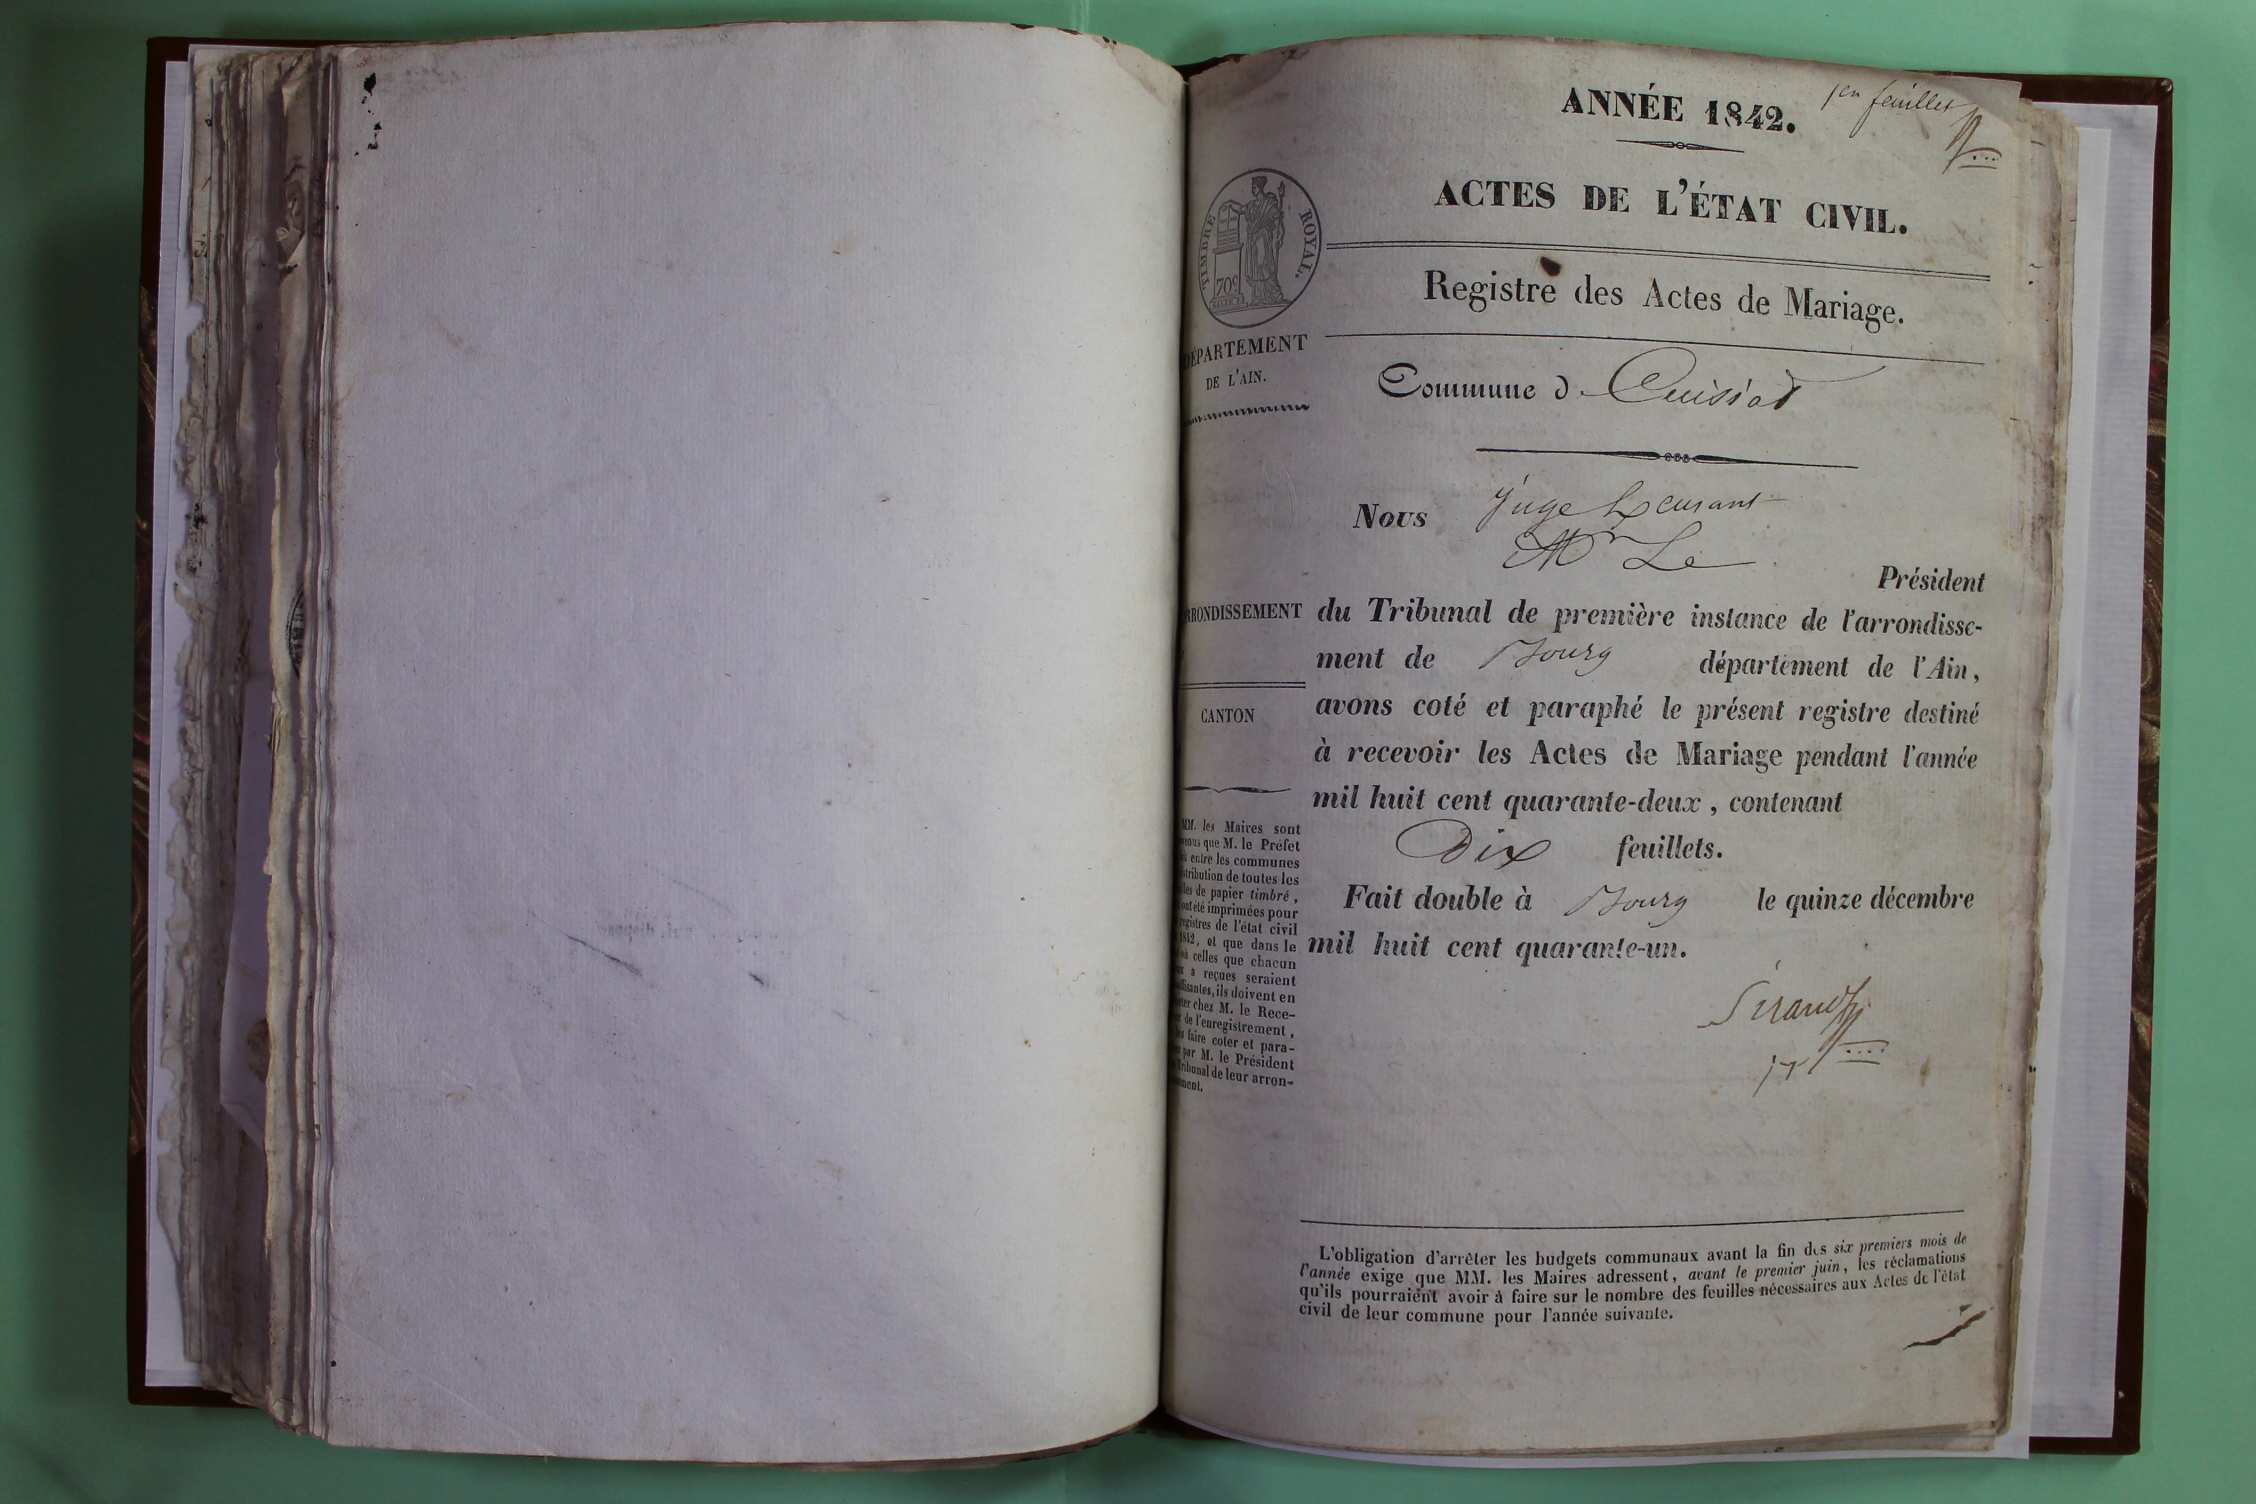 1er feuillet
ANNÉE 1842.
ACTES DE L'ÉTAT CIVIL.
TIMBRE ROYAL.
70c
Registre des Actes de Mariage.
DÉPARTEMENT
DE L'AIN.
Commune d Cuisiat
Nous Juge
Mr Le
Président
RRONDISSEMENT
du Tribunal de première instance de l'arrondisse-
ment de Bourg département de l'Ain,
CANTON
avons coté et paraphé le présent registre destiné
à recevoir les Actes de Mariage pendant l'année
mil huit cent quarante-deux, contenant
Dix feuillets.
Fait double à Bourg le quinze décembre
mil huit cent quarante-un.
MM. les Maires sont
venus que M. le Préfet
entre les communes
stribution de toutes les
lles de papier timbré,
ont été imprimées pour
registres de l'état civil
1842, et que dans le
où celles que chacun
a reçues seraient
ffisantes, ils doivent en
ter chez M. le Rece-
de l'enregistrement,
faire coter et para-
par M. le Président
Tribunal de leur arron-
ment.
Sirand
L'obligation d'arrêter les budgets communaux avant la fin des six premiers mois de
l'année exige que MM. les Maires adressent, avant le premier juin, les réclamations
qu'ils pourraient avoir à faire sur le nombre des feuilles nécessaires aux Actes de l'état
civil de leur commune pour l'année suivante.